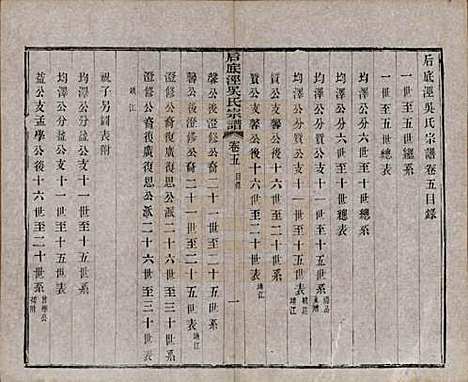 后底涇吳氏宗譜卷五目錄
一世至五世總系
一世至五世總表
均澤公分六世至十世總系
均澤公分六世至十世總表
均澤公分賢公支十一世至十五世系
均澤公分賢公支十一世至十五世表
賢公支馨公後十六世至二十世系
賢公支馨公後十六世至二十世表 靖江
后底涇吳氏宗譜 卷五 目錄 一
馨公後澄修公裔二十一世至二十五世系
馨公後澄修公裔二十一世至二十五世表 靖江
澄修公裔復廣復恩公派二十六世至三十世系
澄修公裔復廣復恩公派二十六世至三十世表
靖江
祝子另圖表附
均澤公分益公支十一世至十五世系
均澤公分益公支十一世至十五世表
益公支孟學公後十六世至二十世系